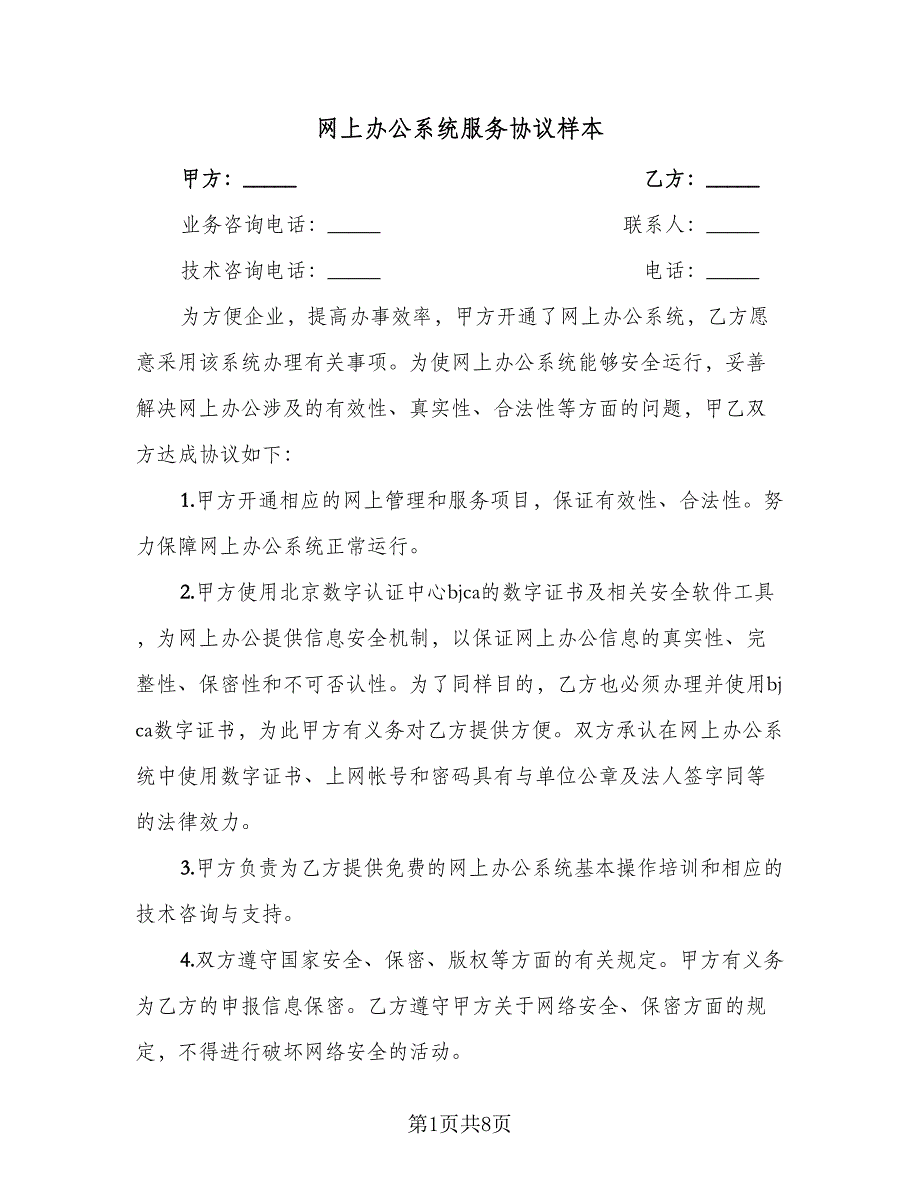 网上办公系统服务协议样本
甲方：_____ 乙方：_____
业务咨询电话：_____ 联系人：_____
技术咨询电话：_____ 电话：_____
为方便企业，提高办事效率，甲方开通了网上办公系统，乙方愿
意采用该系统办理有关事项。为使网上办公系统能够安全运行，妥善
解决网上办公涉及的有效性、真实性、合法性等方面的问题，甲乙双
方达成协议如下：
1.甲方开通相应的网上管理和服务项目，保证有效性、合法性。努
力保障网上办公系统正常运行。
2.甲方使用北京数字认证中心bjca的数字证书及相关安全软件工具
，为网上办公提供信息安全机制，以保证网上办公信息的真实性、完
整性、保密性和不可否认性。为了同样目的，乙方也必须办理并使用bj
ca数字证书，为此甲方有义务对乙方提供方便。双方承认在网上办公系
统中使用数字证书、上网帐号和密码具有与单位公章及法人签字同等
的法律效力。
3.甲方负责为乙方提供免费的网上办公系统基本操作培训和相应的
技术咨询与支持。
4.双方遵守国家安全、保密、版权等方面的有关规定。甲方有义务
为乙方的申报信息保密。乙方遵守甲方关于网络安全、保密方面的规
定，不得进行破坏网络安全的活动。
第1页共8页